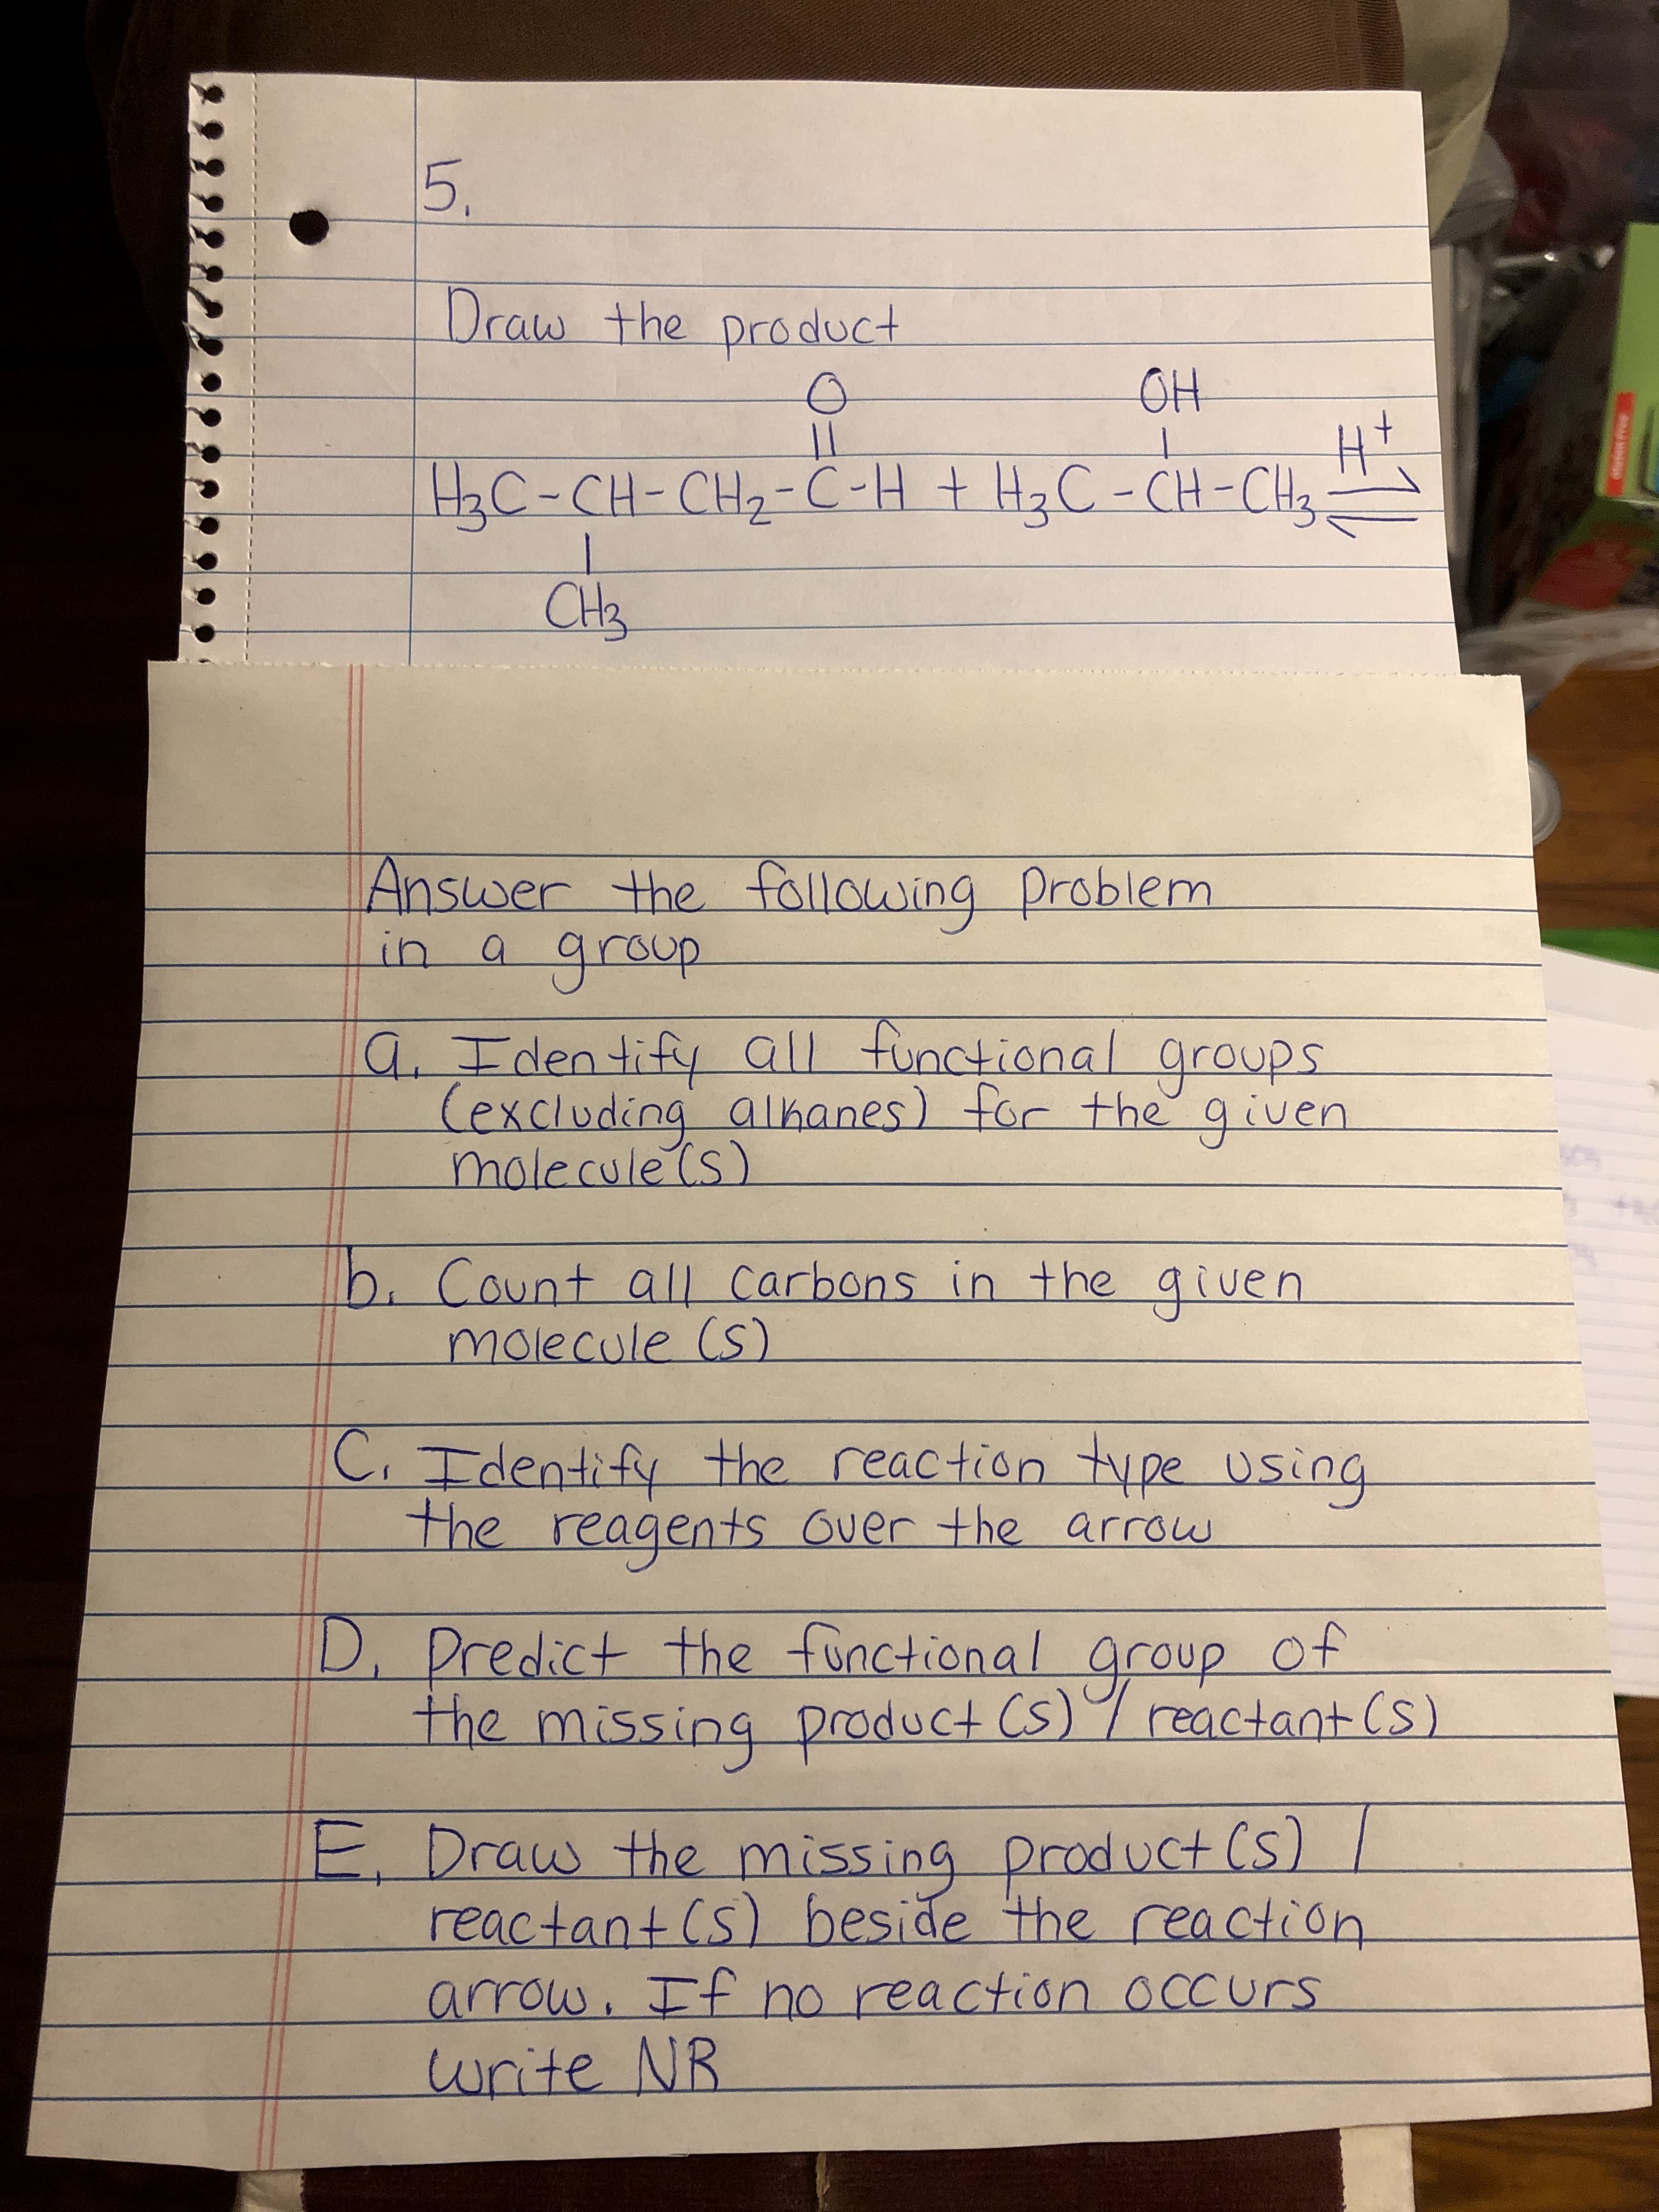 5.
Draw the product
O OH
|| | H+
H3C-CH-CH2-C-H + H3C-CH-CH3 ⇌
|
CH3
Answer the following problem
in a group
a. Identify all functional groups
(excluding alkanes) for the given
molecule(s)
b. Count all carbons in the given
molecule (s)
C. Identify the reaction type using
the reagents over the arrow
D. Predict the functional group of
the missing product (s) / reactant (s)
E. Draw the missing product (s) /
reactant (s) beside the reaction
arrow. If no reaction occurs
write NR